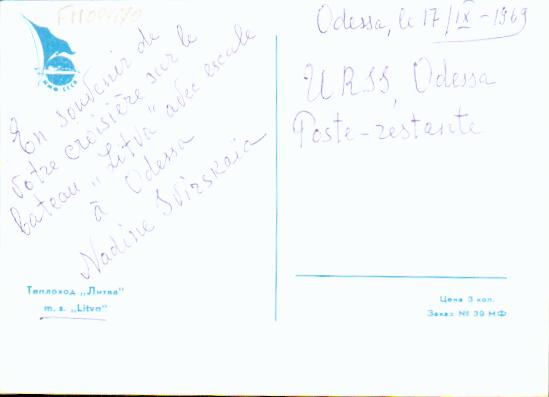 FM00470
ММФ СССР
En souvenir de
votre croisière sur le
bateau „Litva" avec escale
à Odessa
Nadine Svirskaia
Теплоход „Литва"
m. s. „Litva"
Odessa, le 17/IX-1969
URSS, Odessa
Poste-restante
Цена 3 коп.
Заказ № 39 МФ